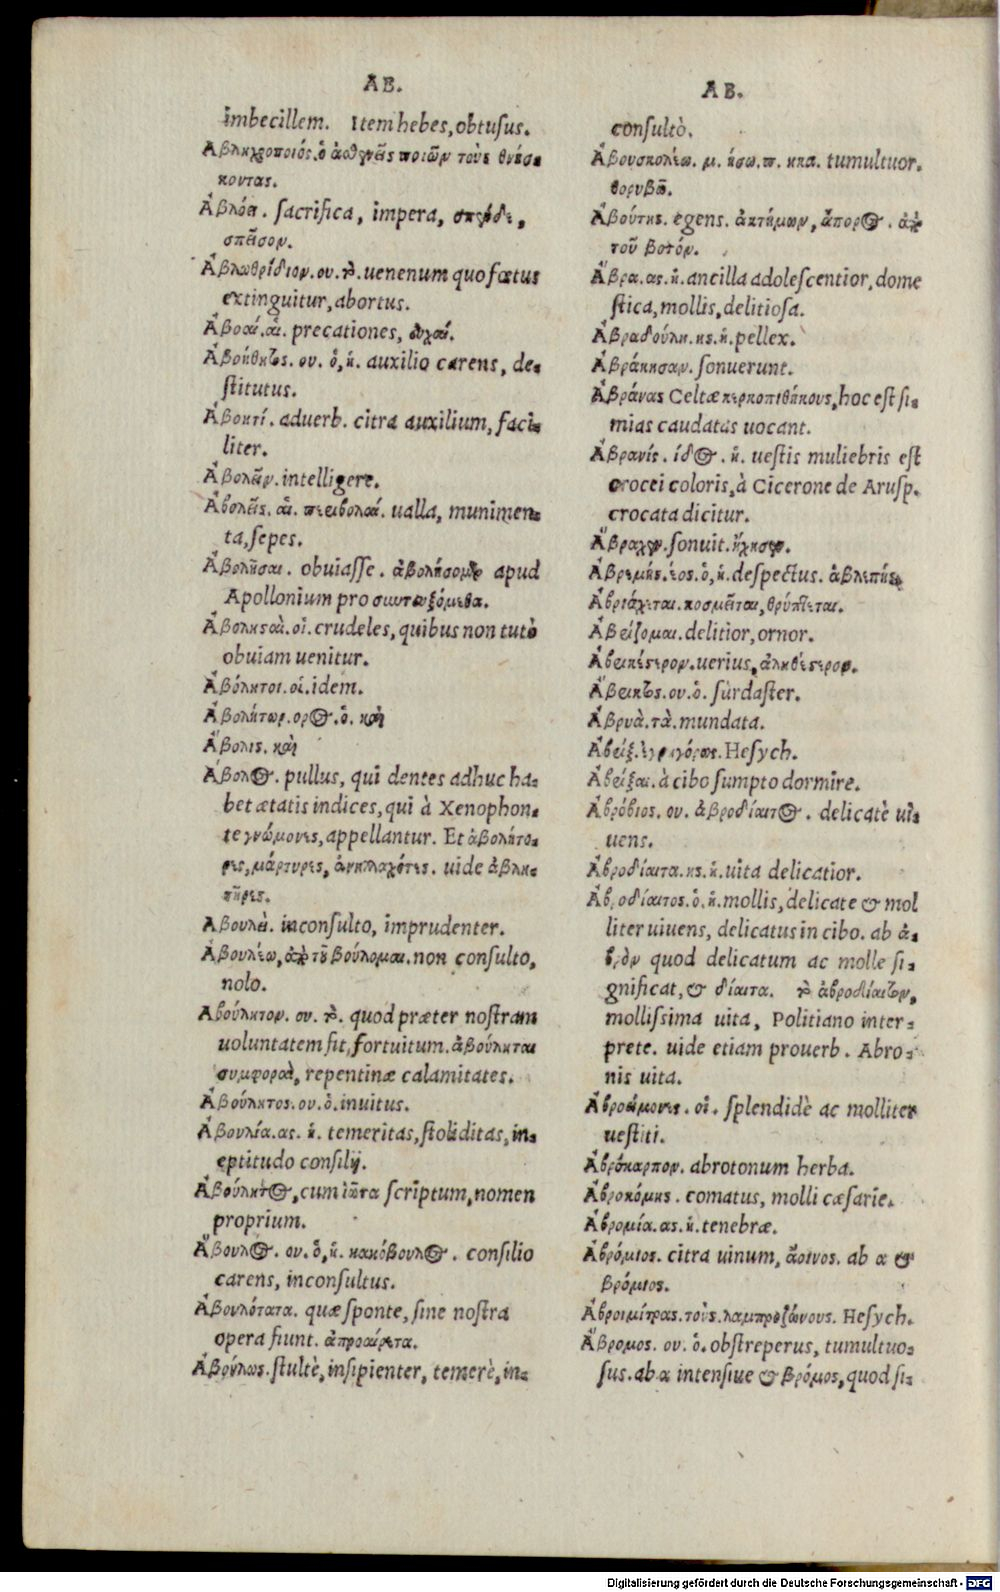 AB.
imbecillem. Item hebes, obtuſus.
Ἀβληχροποιός. ὁ ἀσθενεῖς ποιῶν τοὺς θνήσ-
κοντας.
Ἀβλόη. ſacrifica, impera, σπένδε,
σπεῖσον.
Ἀβλωθρίδιον. ου. τὸ. uenenum quo fœtus
extinguitur, abortus.
Ἀβοαί. αἱ. precationes, εὐχαί.
Ἀβοήθητος. ου. ὁ, ἡ. auxilio carens, de-
ſtitutus.
Ἀβοητί. aduerb. citra auxilium, faci-
liter.
Ἀβολεῖν. intelligere.
Ἀβολεῖς. αἱ. περιβολαί. ualla, munimen-
ta, ſepes.
Ἀβολῆσαι. obuiaſſe. ἀβολήσομεν apud
Apollonium pro συντευξόμεθα.
οἱ. crudeles, quibus non tutò
obuiam uenitur.
Ἀβόλητοι. οἱ. idem.
Ἀβολήτωρ. ορος. ὁ. καὶ
Ἄβολις. καὶ
Ἄβολος. pullus, qui dentes adhuc ha-
bet ætatis indices, qui à Xenophon-
te γνώμονες, appellantur. Et ἀβολήτο-
ρες, μάρτυρες, uide ἀβλη-
τῆρες.
Ἀβουλεὶ. inconſulto, imprudenter.
Ἀβουλέω, ἀπὸ τοῦ βούλομαι. non conſulto,
nolo.
Ἀβούλητον. ου. τὸ. quod præter noſtram
uoluntatem fit, fortuitum. ἀβούληται
συμφοραὶ, repentinæ calamitates.
Ἀβούλητος. ου. ὁ. inuitus.
Ἀβουλία. ας. ἡ. temeritas, ſtoliditas, in-
eptitudo conſilij.
Ἀβούλητος, cum ἰῶτα ſcriptum, nomen
proprium.
Ἄβουλος. ου. ὁ, ἡ. κακόβουλος. conſilio
carens, inconſultus.
Ἀβουλότατα. quæ ſponte, ſine noſtra
opera fiunt. ἀπροαίρετα.
Ἀβούλως. ſtultè, inſipienter, temerè, in-
AB.
conſultò.
Ἀβουσκολέω. μ. ήσω. π. ηκα. tumultuor.
θορυβῶ.
Ἀβούτης. egens. ἀκτήμων, ἄπορος. ἀπὸ
τοῦ βοτόν.
Ἅβρα. ας. ἡ. ancilla adoleſcentior, dome
ſtica, mollis, delitioſa.
Ἀβραδούλη. ης. ἡ. pellex.
Ἀβράκησαν. ſonuerunt.
Ἀβράνας Celtæ κερκοπιθήκους, hoc eſt ſi-
mias caudatas uocant.
Ἀβρανίς. ίδος. ἡ. ueſtis muliebris eſt
crocei coloris, à Cicerone de Aruſp.
crocata dicitur.
Ἄβραχεν. ſonuit. ἤχησεν.
Ἀβρεμής. έος. ὁ, ἡ. deſpectus. ἀβλεπής.
Ἀβριάχεται. κοσμεῖται, θρύπτεται.
Ἁβρίζομαι. delitior, ornor.
Ἀβρικέστερον. uerius, ἀληθέστερον.
Ἄβρικτος. ου. ὁ. ſurdaſter.
Ἀβρυὰ. τὰ. mundata.
Ἀβρίξ. ἐγρηγόρως. Heſych.
Ἀβρίξαι. à cibo ſumpto dormire.
Ἁβρόβιος. ου. ἁβροδίαιτος. delicatè ui-
uens.
Ἁβροδίαιτα. ης. ἡ. uita delicatior.
Ἁβροδίαιτος. ὁ. ἡ. mollis, delicate & mol
liter uiuens, delicatus in cibo. ab ἁ-
βρὸν quod delicatum ac molle ſi-
gnificat, & δίαιτα. τὸ ἁβροδίαιτον,
molliſsima uita, Politiano inter-
prete. uide etiam prouerb. Abro-
nis uita.
Ἁβροείμονες. οἱ. ſplendidè ac molliter
ueſtiti.
Ἁβρόκαρπον. abrotonum herba.
Ἁβροκόμης. comatus, molli cæſarie.
Ἀβρομία. ας. ἡ. tenebræ.
Ἀβρόμιος. citra uinum, ἄοινος. ab α &
βρόμιος.
Ἁβροιμίτρας. τοὺς. λαμπροζώνους. Heſych.
Ἄβρομος. ου. ὁ. obſtreperus, tumultuo-
ſus. ab α intenſiue & βρόμος, quod ſi-
Digitalisierung gefördert durch die Deutsche Forschungsgemeinschaft - DFG